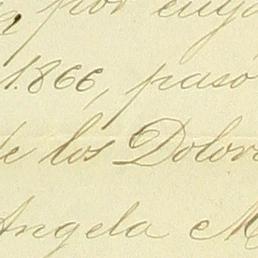 por cuya
1.866, pasó
de los Dolor
Angela M